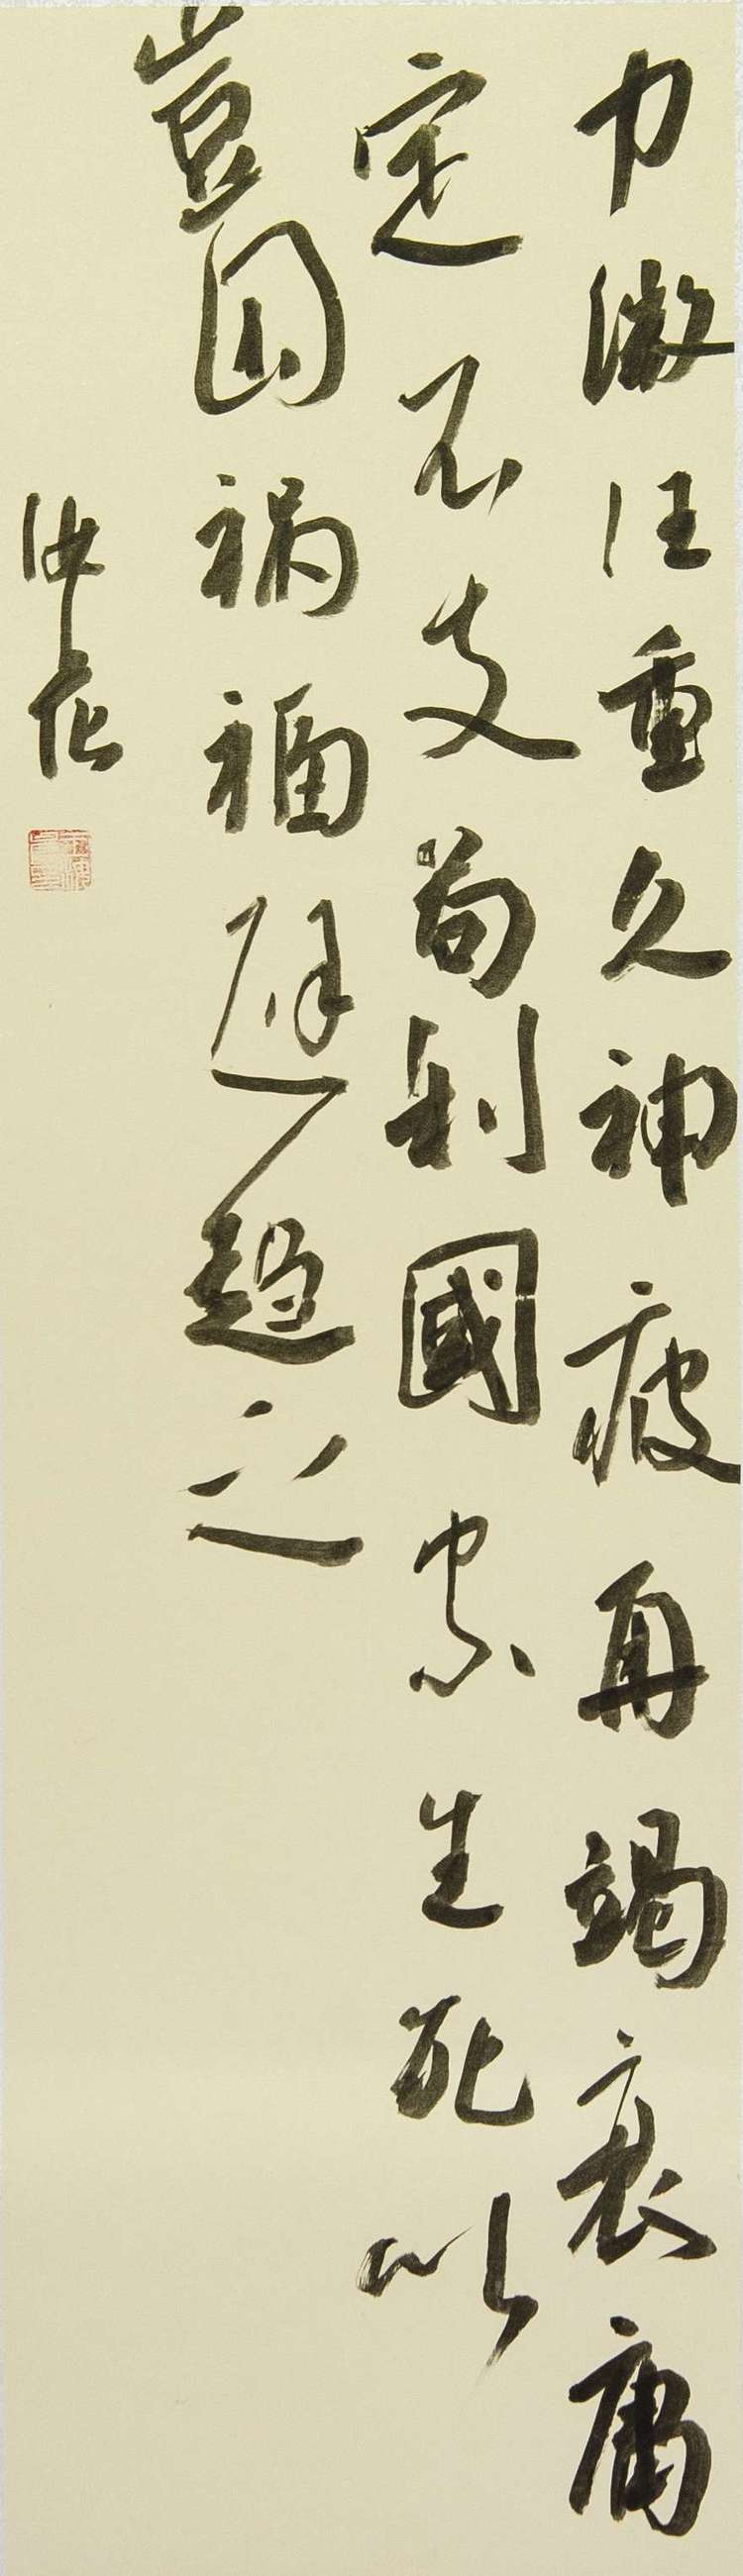 力微任重久神疲再竭衰庸
定不支苟利國家生死以
豈因祸福避趋之